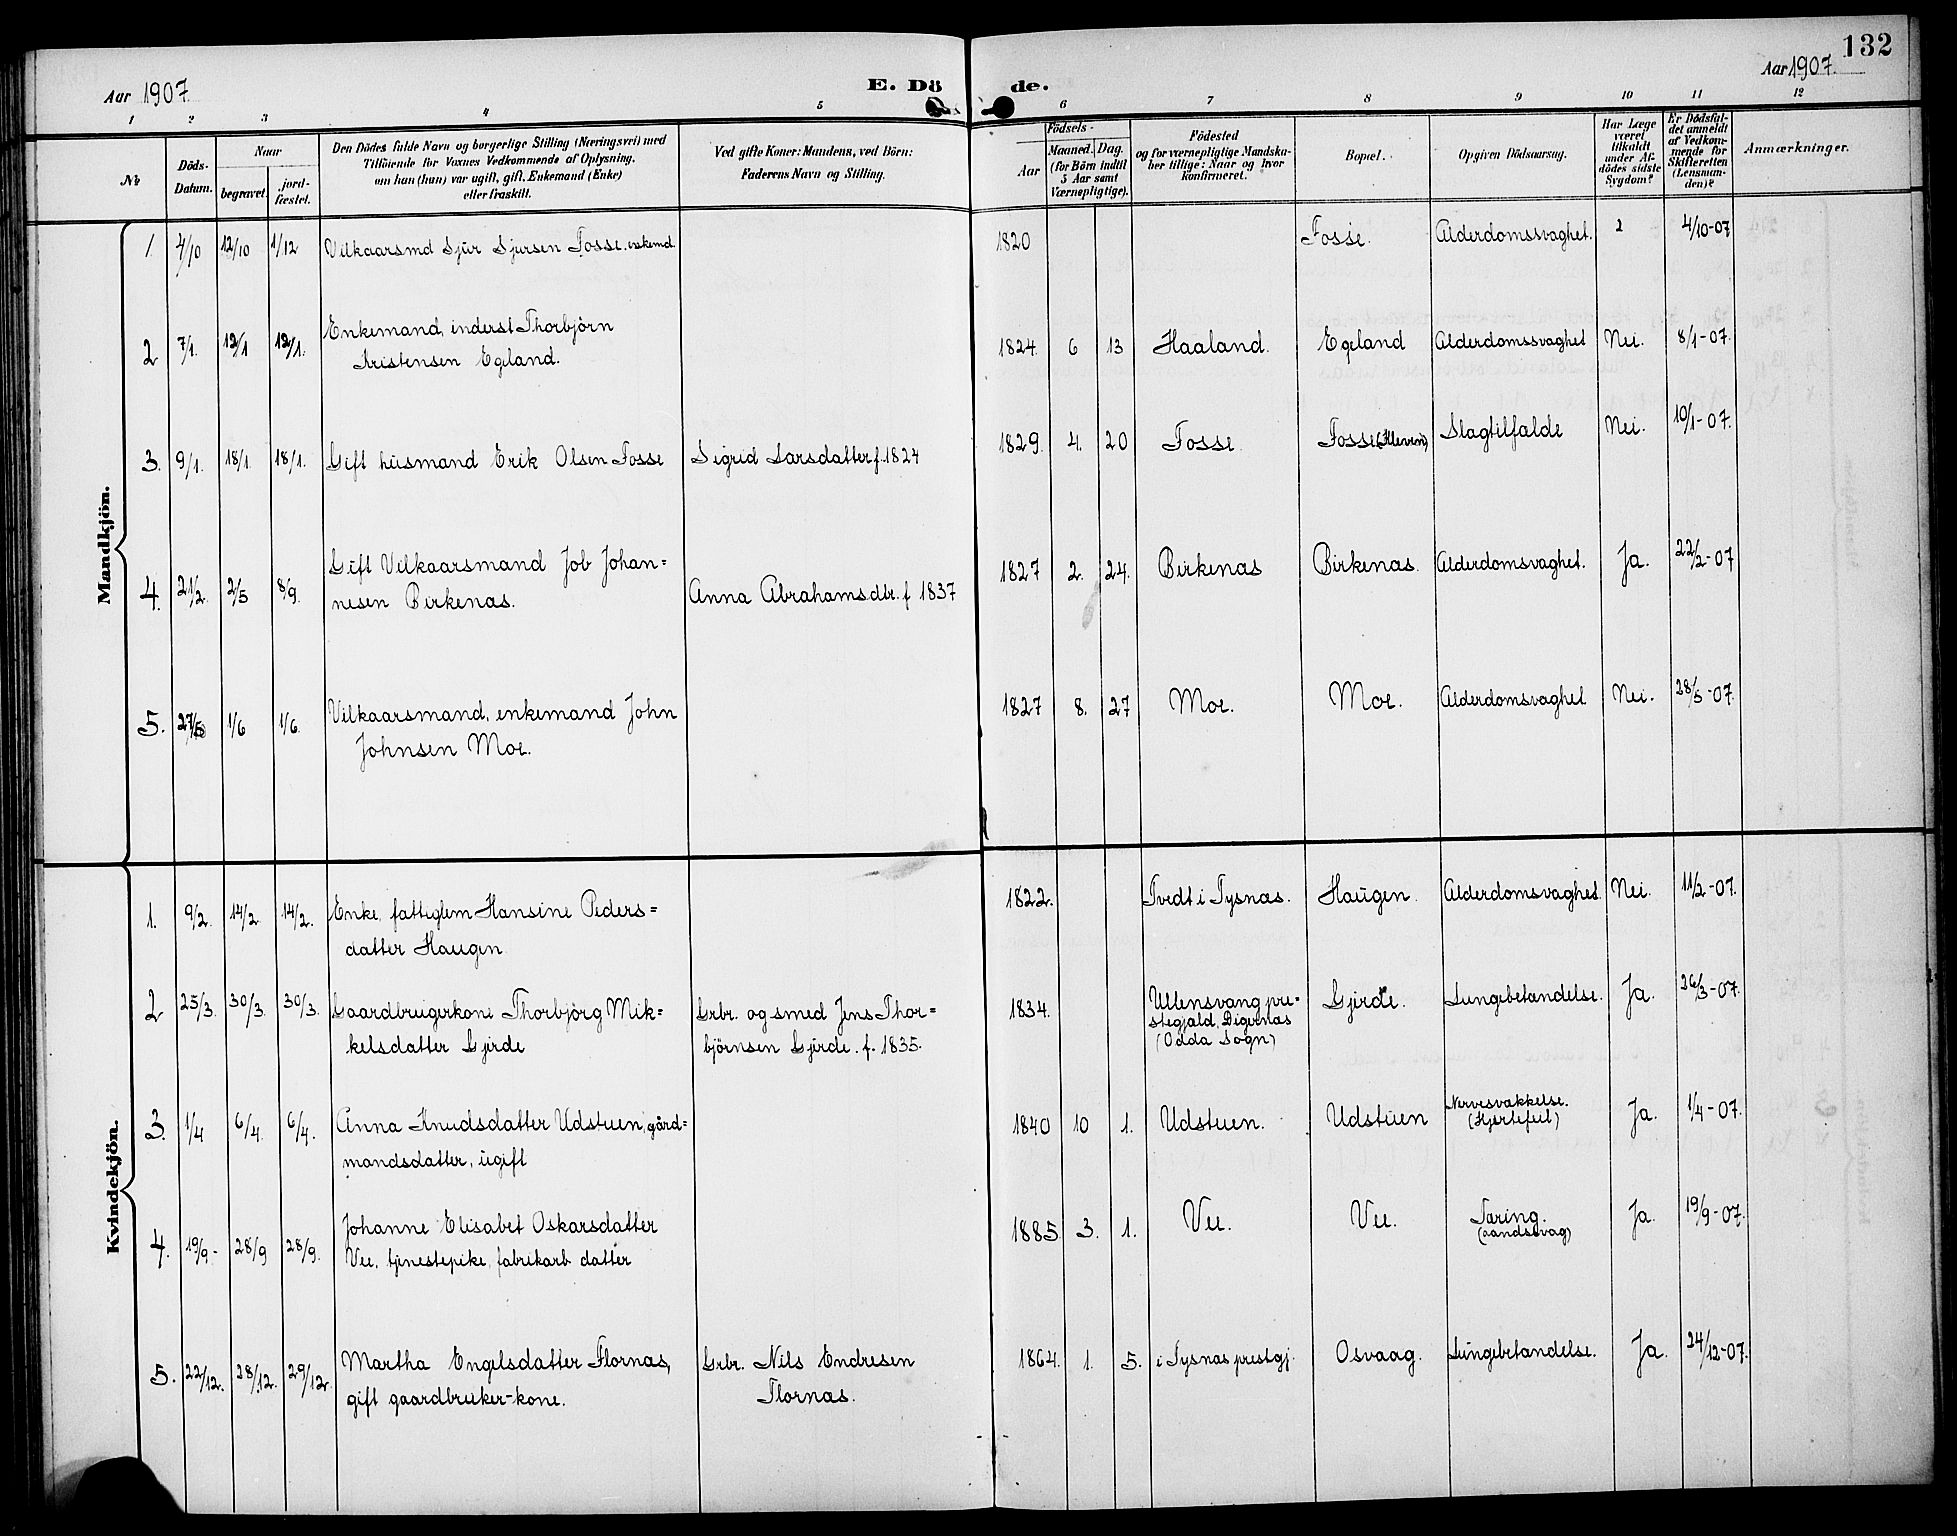 132
Aar 1907.
E. Dö de.
Aar 1907.
1 2 3 4 5 6 7 8 9 10 11 12
№
Döds-Datum.
Naar
begravet.
jord-fæstet.
Den Dödes fulde Navn og borgerlige Stilling (Næringsvei) med
Tilföiende för Voxnes Vedkommende af Oplysning,
om han (hun) var ugift, gift, Enkemand (Enke)
eller fraskilt.
Ved gifte Koner: Mandens, ved Börn:
Faderens Navn og Stilling.
Födsels-
Aar
Maaned. Dag.
(for Börn indtil
5 Aar samt
Værnepligtige).
Födested
og for værnepligtige Mandska-
ber tillige: Naar og hvor
konfirmeret.
Bopæl.
Opgiven Dödsaarsag.
Har Læge
været
tilkaldt
under Af-
dödes sidste
Sygdom?
Er Dödsfal-
det anmeldt
af Vedkom-
mende for
Skifteretten
(Lensman-
den)?
Anmærkninger.
Mandkjön.
1. 4/10 12/10 1/12 Vilkaarsmd Sjur Sjursen Fosse. enkemd. 1820 Fosse. Alderdomssvaghet. 4/10-07
2 7/1. 12/1 12/1. Enkemand, inderst Thorbjörn
Kristensen Egeland. 1824. 6 13 Haaland. Egeland Alderdomssvaghet Nei. 8/1-07.
3. 9/1. 18/1. 18/1. Gift husmand Erik Olsen Fosse Sigrid Larsdatter f. 1824 1829. 4. 20 Fosse. Fosse (Kleven) Slagtilfalde Nei. 10/1-07.
4. 21/2. 2/5 8/9. Gift Vilkaarsmand Job Johan=
nesen Birkenas. Anna Abrahamsdtr. f 1837 1827 2. 24. Birkenas Birkenas. Alderdomsvaghet. Ja. 22/2-07
5. 27/5 1/6 1/6. Vilkaarsmand, enkemand John
Johnsen Moe. 1827 8. 27 Moe. Moe. Alderdomsvaghet Nei. 28/5-07.
Kvindekjön.
1. 9/2. 14/2 14/2. Enke, fattiglem Hansine Peders=
datter Haugen 1822. Tvedt i Tysnas. Haugen. Alderdomsvaghet. Nei. 11/2-07.
2 25/3. 30/3. 30/3. Gaardbrugerkone Thorbjörg Mik=
kelsdatter Gjerde Grbr. og smed Jens Thor=
björnsen Gjerde. f. 1835. 1834. Ullensvang pre=
stegjald, Digernas
(Odda Sogn) Gjerde. Lungebetandelse. Ja. 26/3-07.
3. 1/4 6/4. 6/4. Anna Knudsdatter Udstuen, gård=
mandsdatter, ugift 1840 10 1. Udstuen. Udstuen Nervesvakkelse.
(Hjertefeil) Ja. 1/4-07.
4. 19/9- 28/9 28/9. Johanne Elisabet Oskarsdatter
Vee, tjenestepike, fabrikarb. datter 1885. 3. 1. Vee. Vee. Taring.
(aandssvag) Ja. 19/9-07.
5. 22/12. 28/12. 29/12. Martha Engelsdatter Flornas,
gift gaardbruker-kone. Grbr. Nils Endresen
Flornas. 1864. 1. 5. i Tysnas prestgj. Osvaag. Lungebetandelse. Ja. 24/12-07.